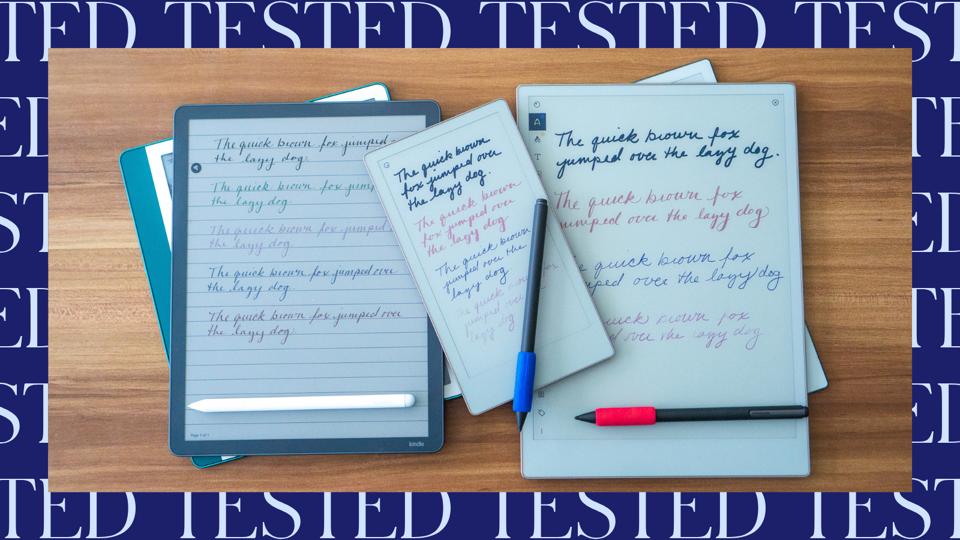 TED TESTED TESTED TEST
The quick brown fox jumped
the lazy dog.
The quick brown fox jump
the lazy dog.
The quick brown fox jumped
the lazy dog.
The quick brown fox jumped over
the lazy dog.
The quick brown fox jumped over
the lazy dog.
Page 1 of 1
kindle
The quick brown
fox jumped over
the lazy dog.
The quick brown
fox jumped over
the lazy dog
The quick brown
jumped over the
lazy dog
quick
jumped over
lazy dog
A
T
The quick brown fox
jumped over the lazy dog.
The quick brown fox
jumped over the lazy dog
quick brown fox
over the lazy dog
quick brown fox
over the lazy dog
TED TESTED TESTED TEST